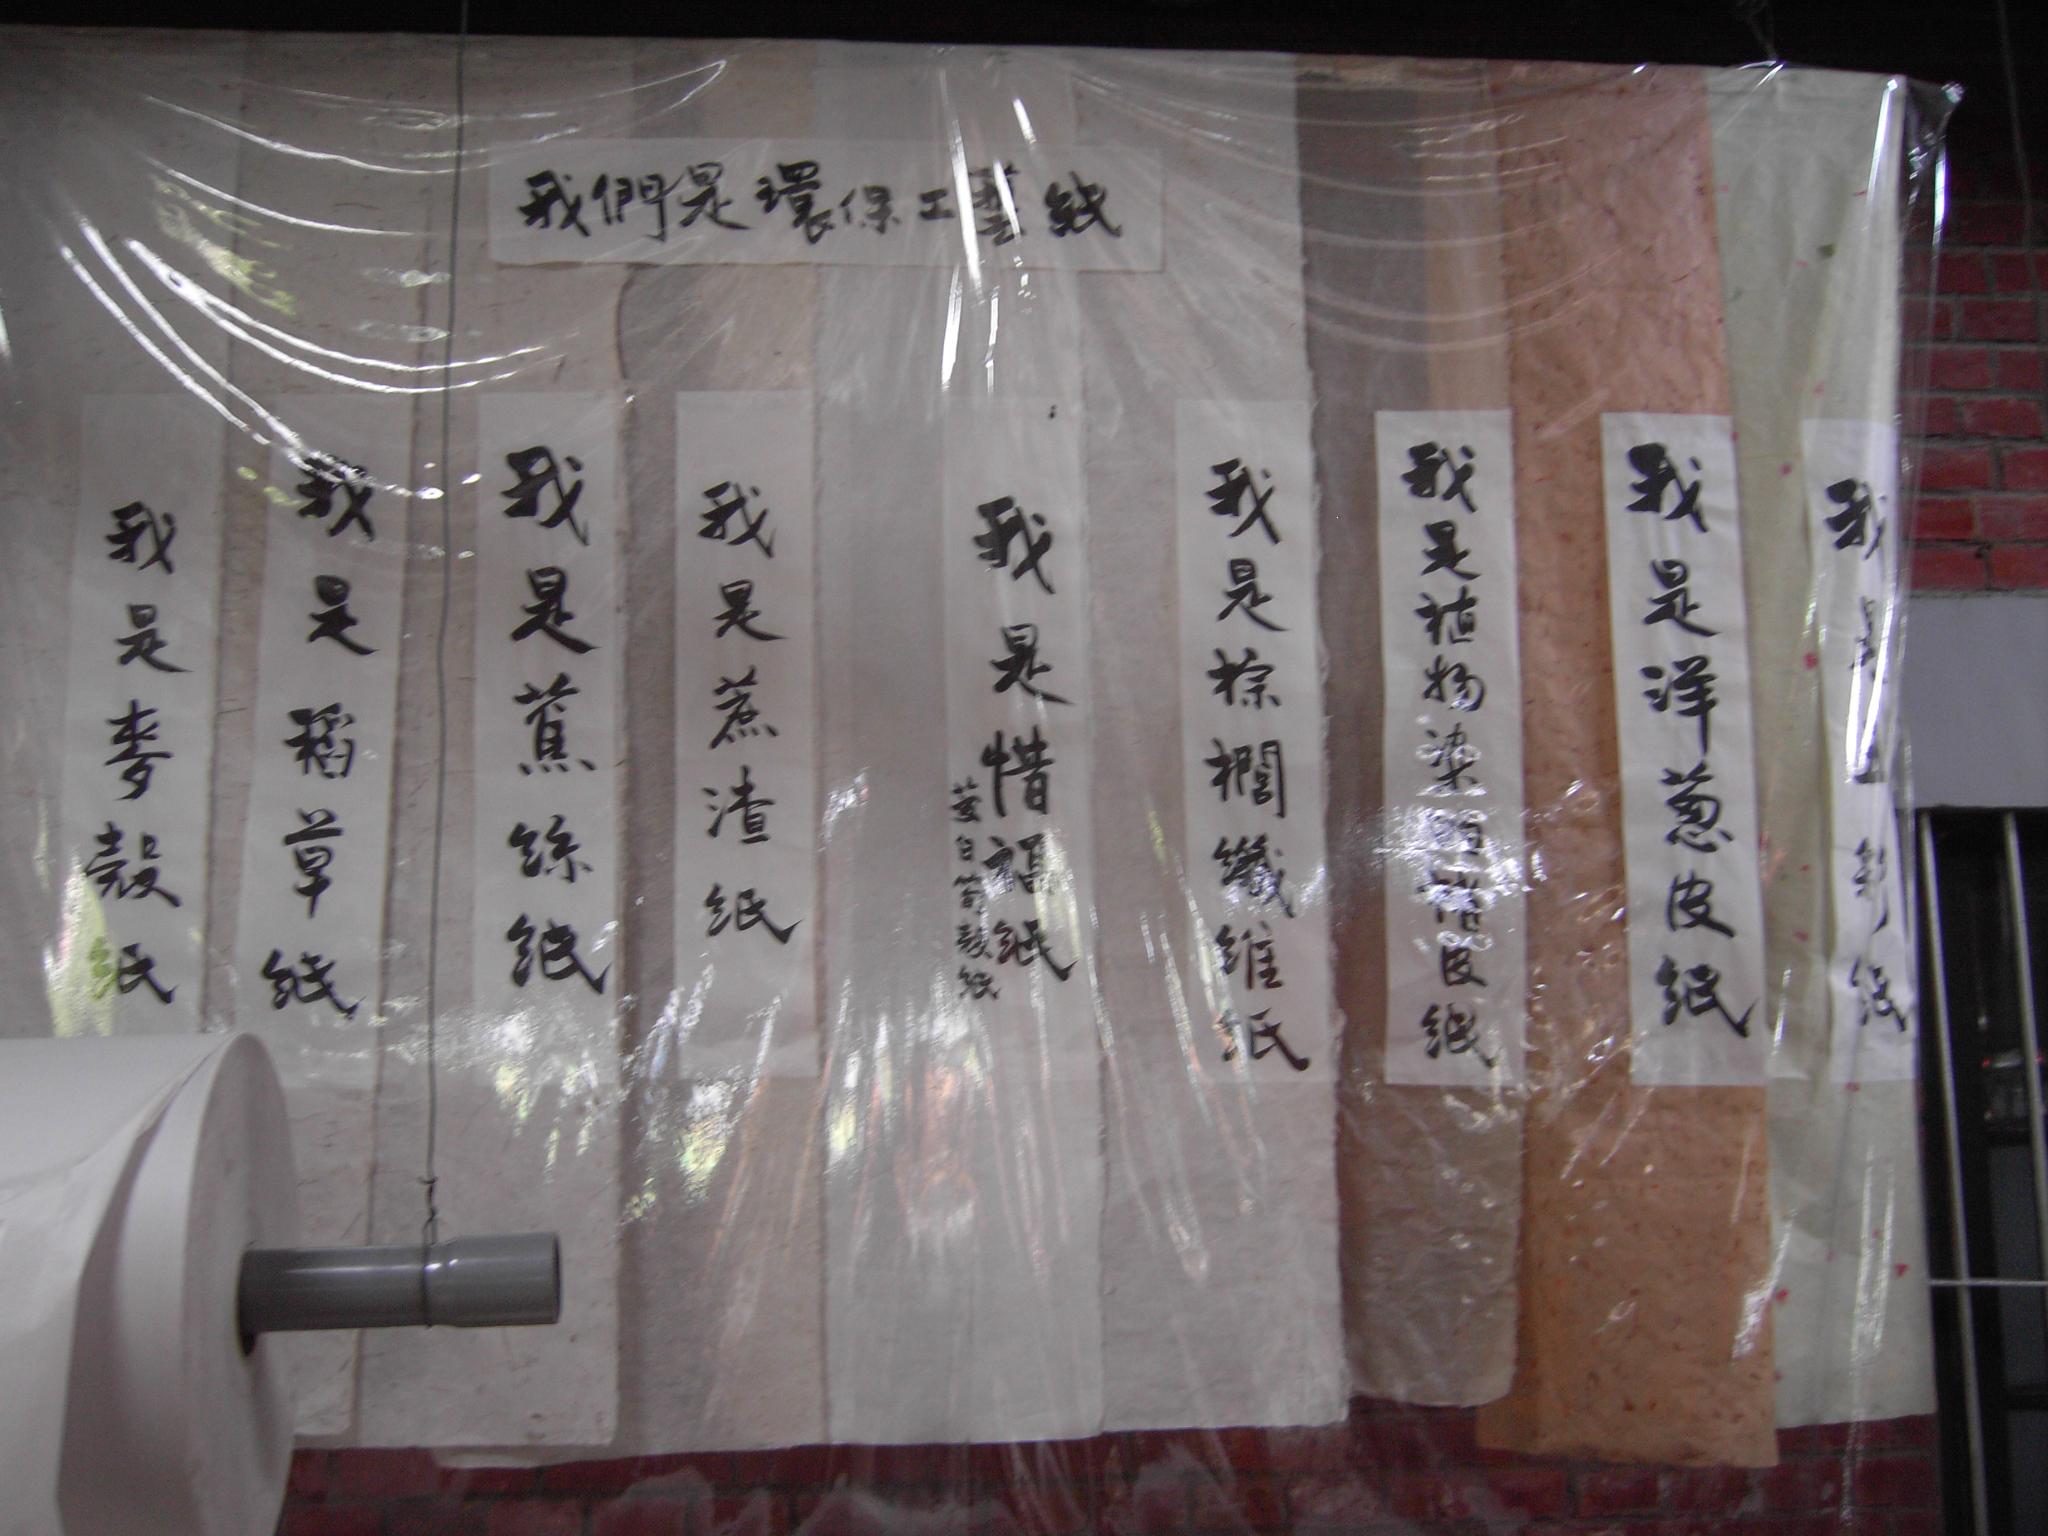 我們是環保工藝紙
我是麥殼紙
我是稻草紙
我是蕉絲紙
我是蔗渣紙
我是惜福紙
茭白筍殼紙
我是棕櫚纖維紙
我是植物染色楮皮紙
我是洋蔥皮紙
我是 彩紙